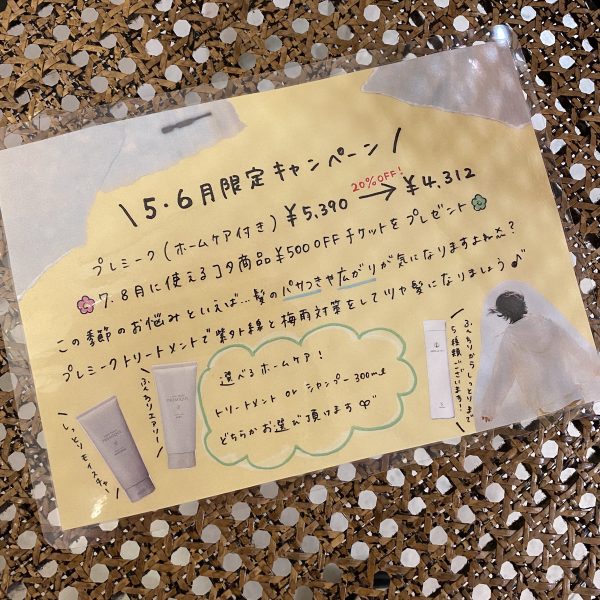 \5・6月限定キャンペーン/
20%OFF!
プレミーク(ホームケア付き)¥5,390→¥4,312
7.8月に使えるコタ商品¥500OFFチケットをプレゼント
この季節のお悩みといえば…髪のパサつきや広がりが気になりますよね?
プレミークトリートメントで紫外線と梅雨対策をしてツヤ髪になりましょう♪
選べるホームケア!
トリートメント or シャンプー300ml
どちらかお選び頂けます
ふんわりエアリー
しっとりモイスチャー
ふんわりからしっとりまで
5種類ございます!